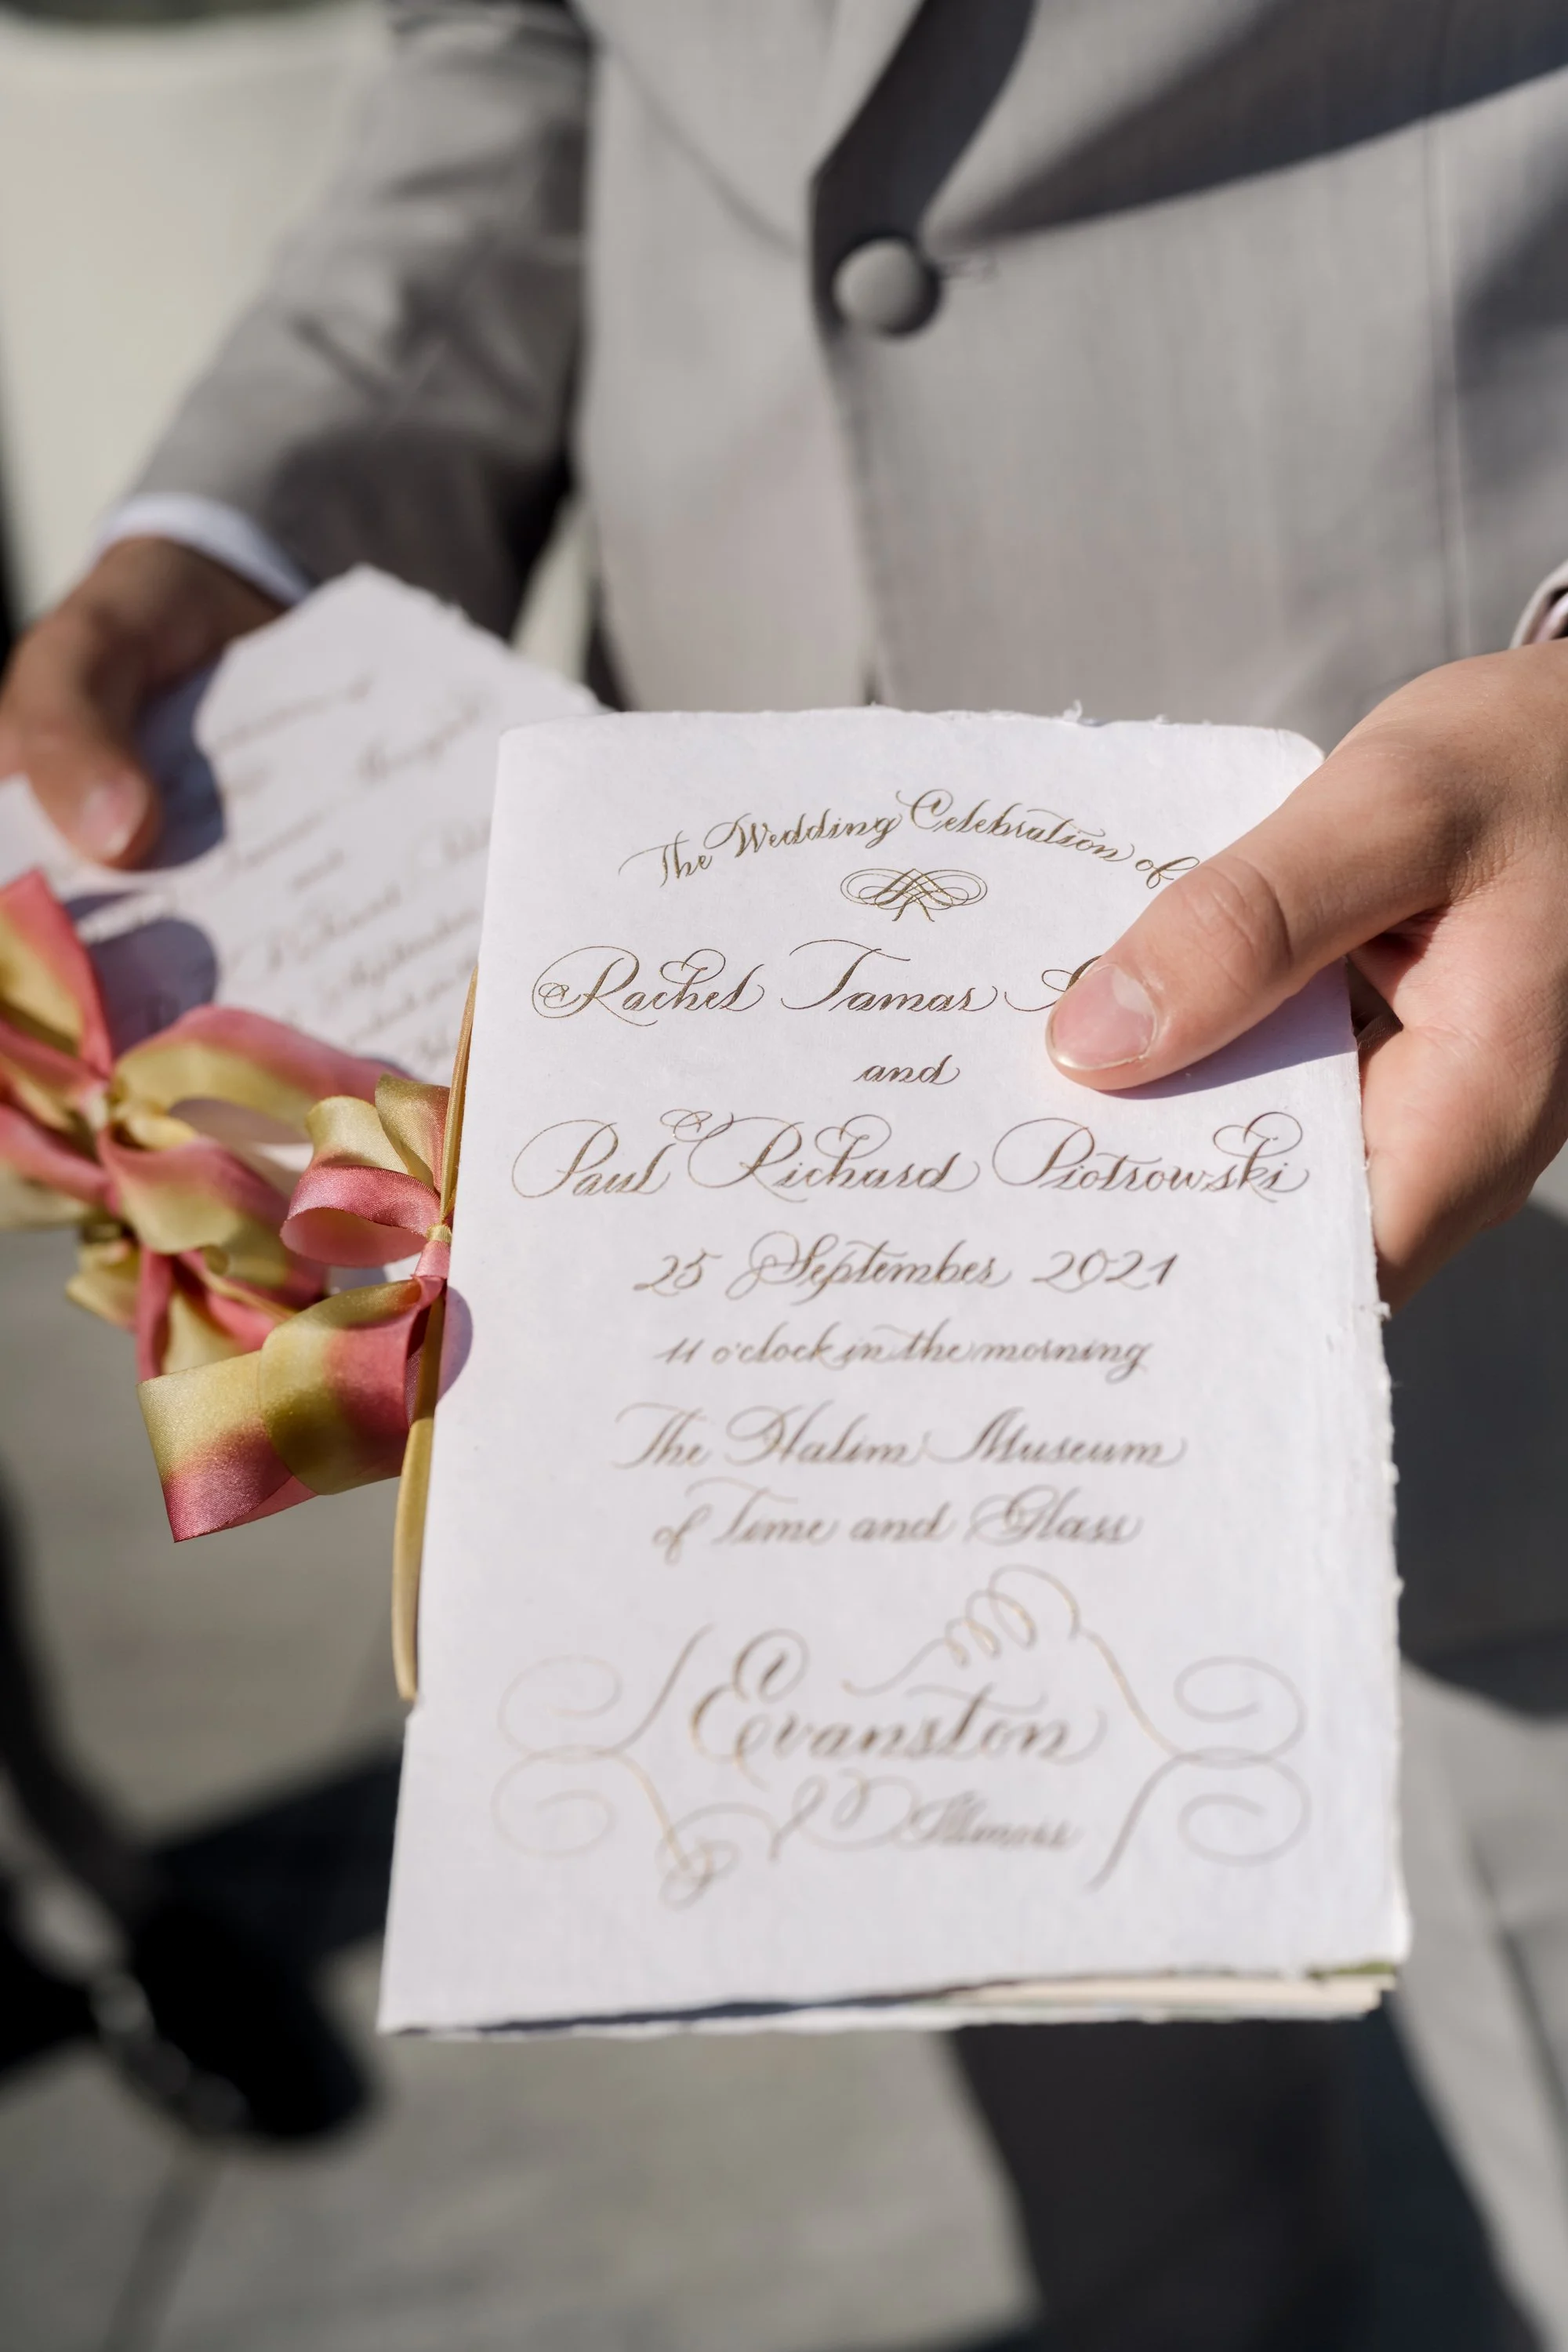 The Wedding Celebration of
Rachel Tamar
and
Paul Richard Piotrowski
25 September 2021
11 o'clock in the morning
The Halim Museum
of Time and Glass
Evanston
Illinois